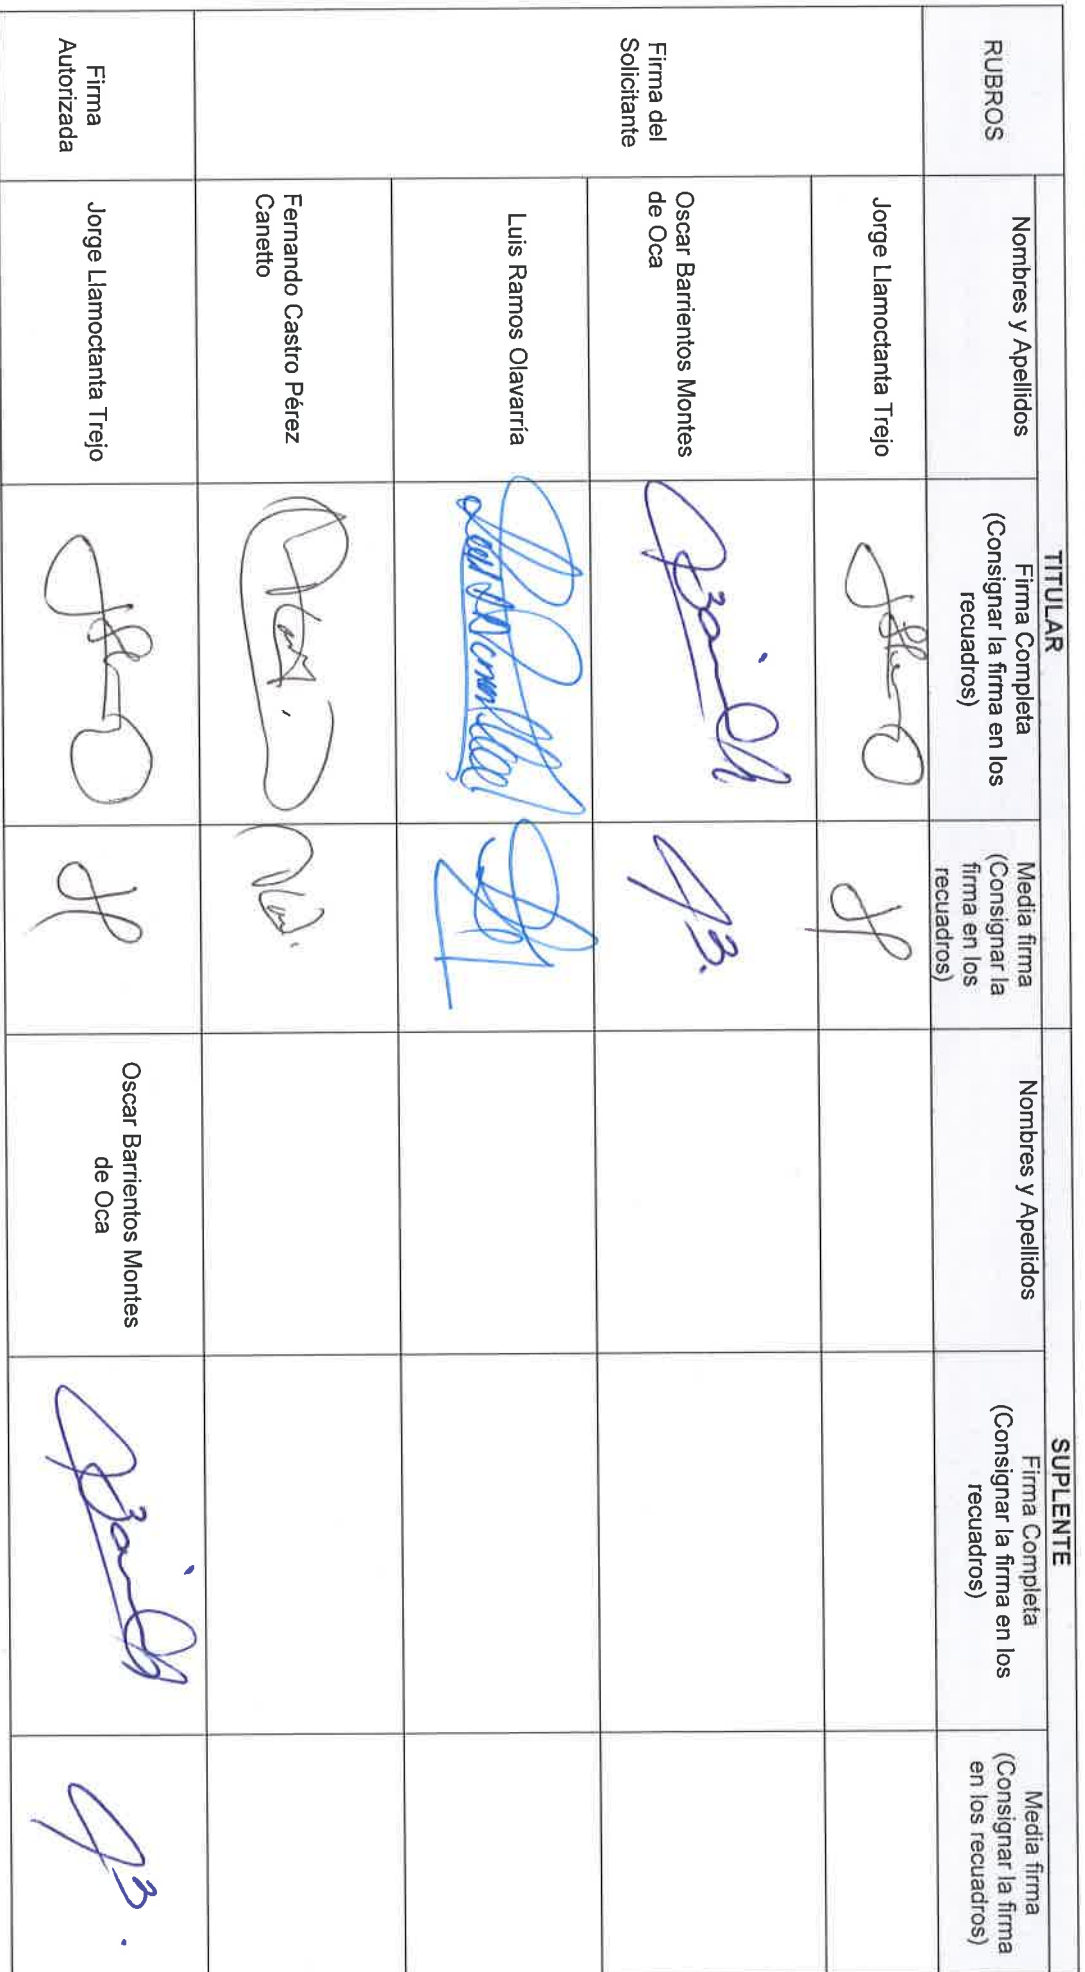 RUBROS
TITULAR
SUPLENTE
Nombres y Apellidos
Firma Completa
(Consignar la firma en los
recuadros)
Media firma
(Consignar la
firma en los
recuadros)
Nombres y Apellidos
Firma Completa
(Consignar la firma en los
recuadros)
Media firma
(Consignar la firma
en los recuadros)
Firma del
Solicitante
Jorge Llamoctanta Trejo
Oscar Barrientos Montes
de Oca
Luis Ramos Olavarría
Fernando Castro Pérez
Canetto
Firma
Autorizada
Jorge Llamoctanta Trejo
Oscar Barrientos Montes
de Oca